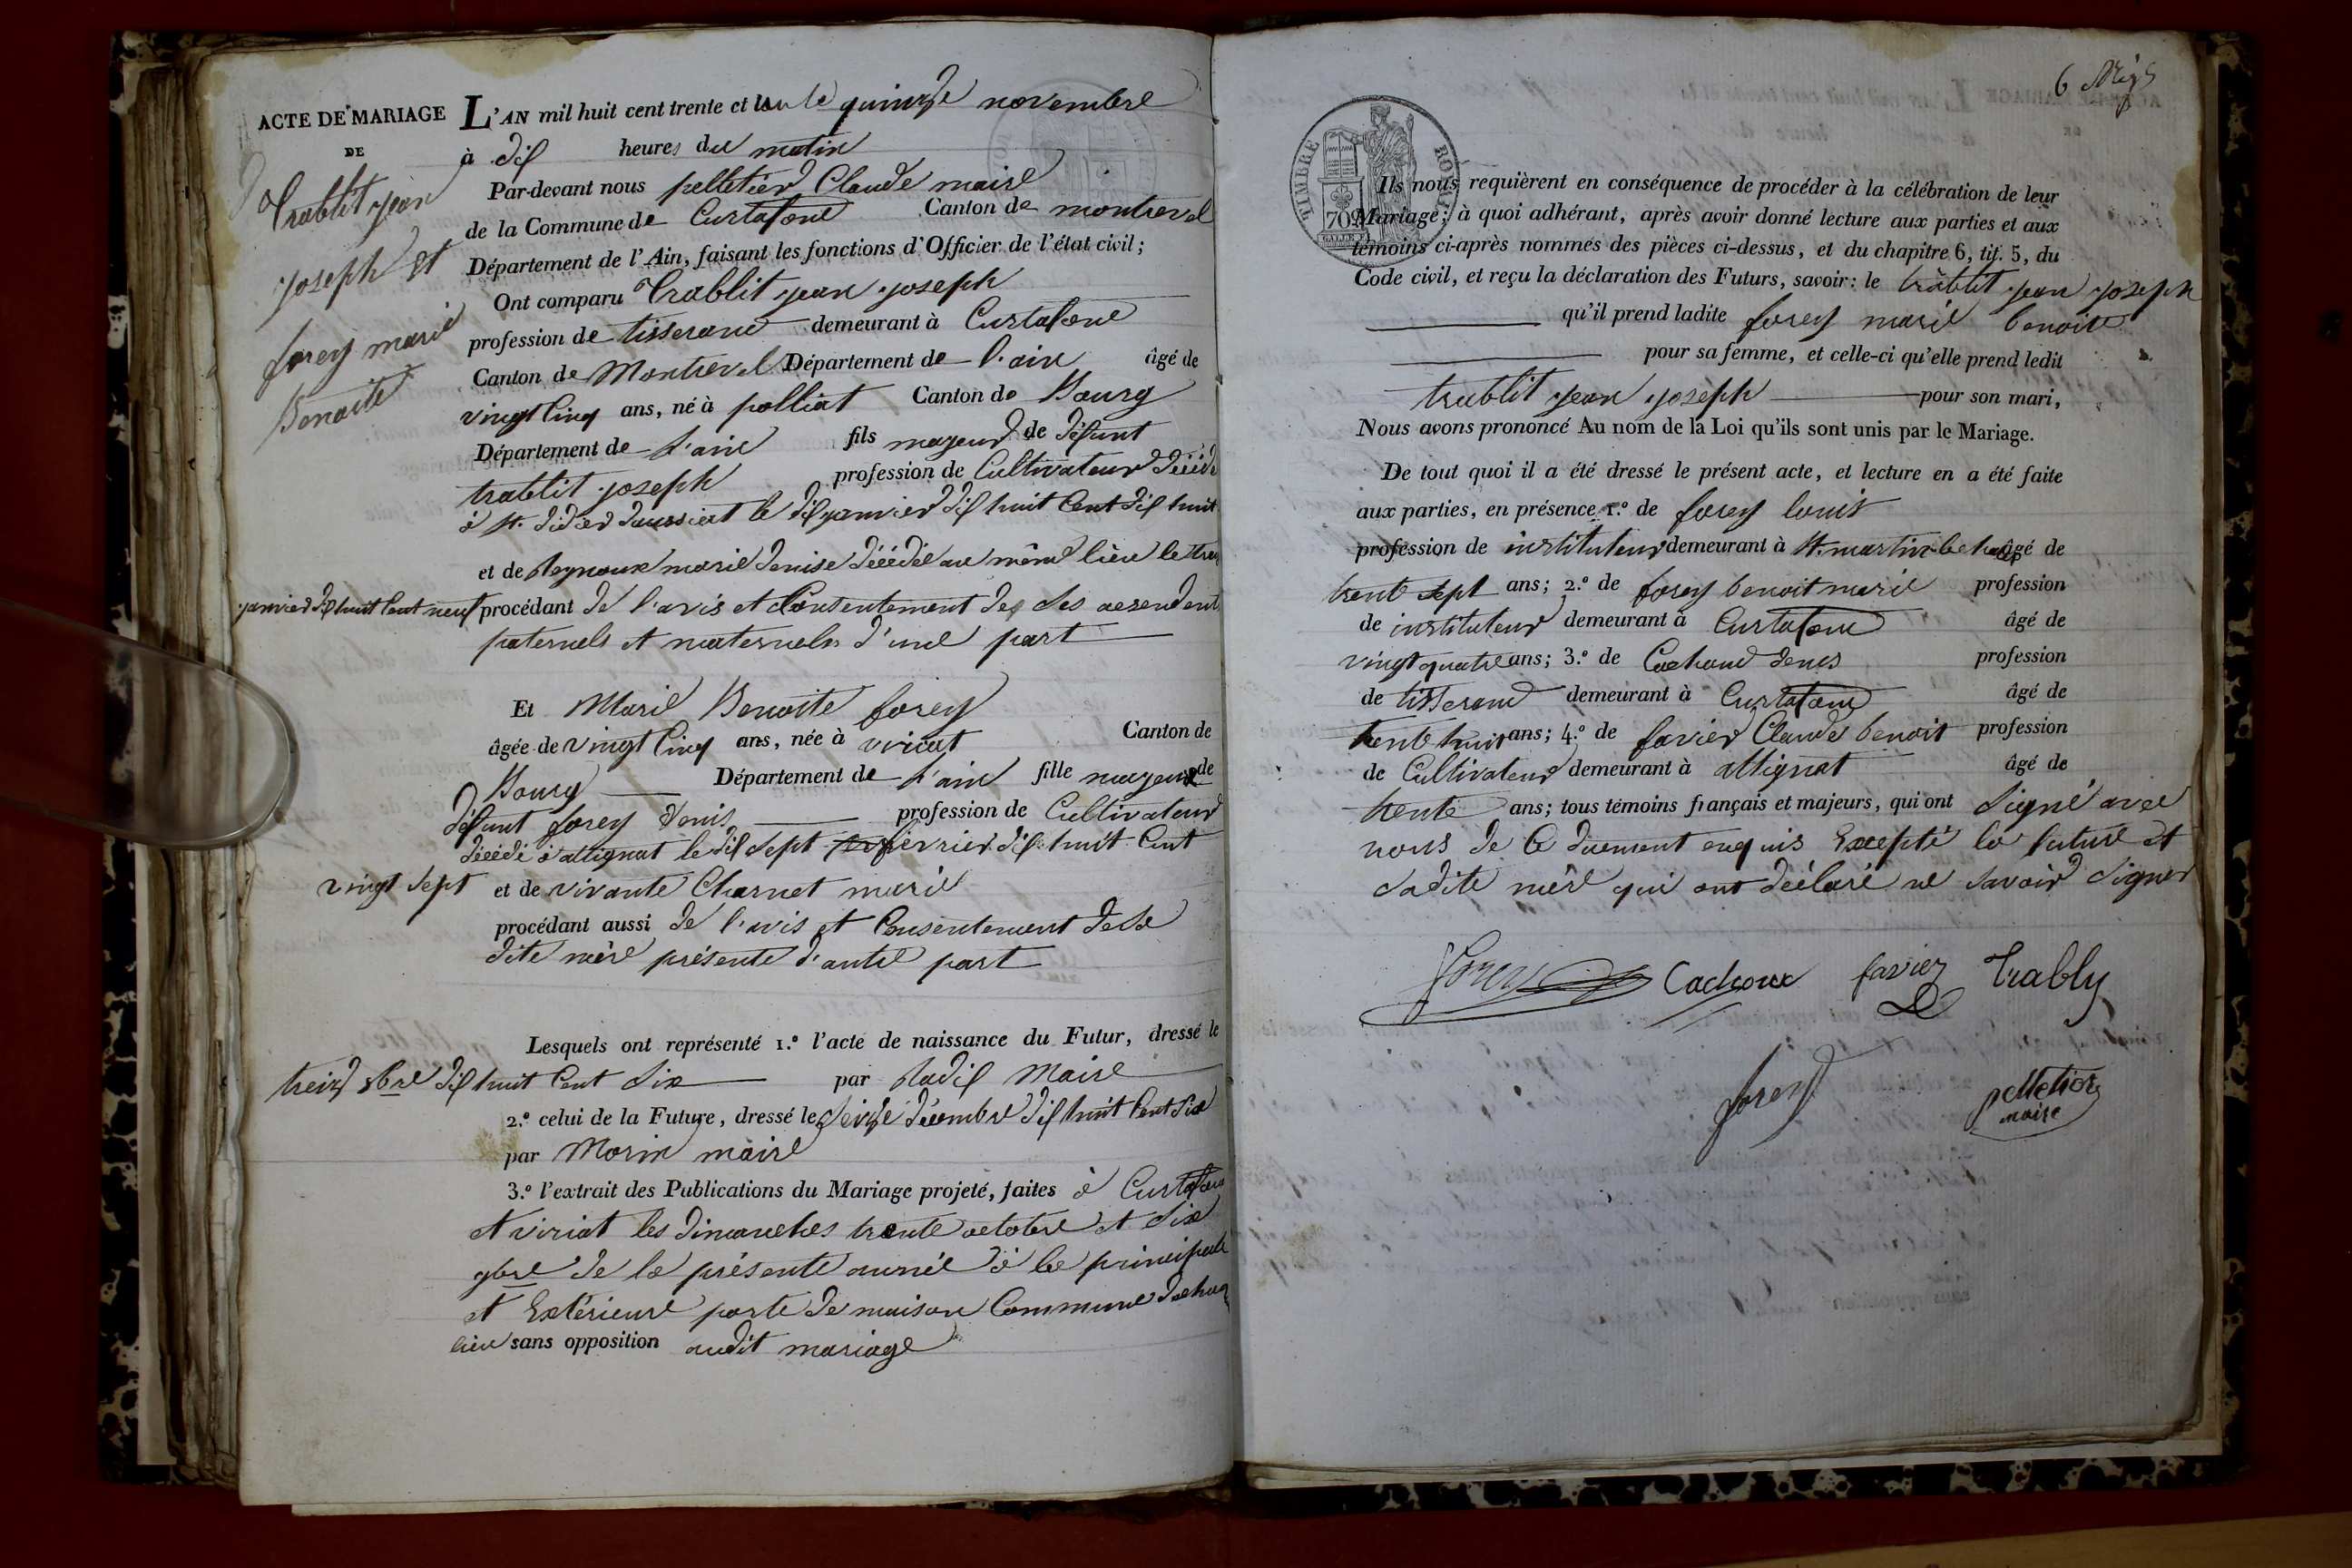 ACTE DE MARIAGE
DE
Trablit jean
joseph et
forey marie
Benoite
L'AN mil huit cent trente et un le quinze novembre
à dix heures du matin
Par-devant nous pelletier Claude maire
de la Commune de Curtafond Canton de montrevel
Département de l'Ain, faisant les fonctions d'Officier de l'état civil;
Ont comparu Trablit jean joseph
profession de tisserand demeurant à Curtafond
Canton de Montrevel Département de l'ain âgé de
vingt cinq ans, né à polliat Canton de Bourg
Département de L'ain fils mageur de défunt
trablit joseph profession de Cultivateur décédé
à st. didier daussiat le dix janvier dix huit Cent dix huit
et de Reynoux marie denise décédée au même lieu le
janvier dix huit Cent neuf procédant de l'avis et Consentement des
paternels et maternels d'une part
Et Marie Benoite forey
âgée de vingt Cinq ans, née à viriat Canton de
Bourg Département de L'ain fille mageure de
défunt forey denis profession de Cultivateur
décédé à attignat le dix sept février dix huit Cent
vingt sept et de vivante Charnet marie
procédant aussi de l'avis et Consentement de sa
dite mère présente d'autre part
Lesquels ont représenté 1.º l'acte de naissance du Futur, dressé le
treize 8bre dix huit Cent six par Radix Maire
2.º celui de la Future, dressé le seize décembre dix huit Cent six
par Morin maire
3.º l'extrait des Publications du Mariage projeté, faites à Curtafond
et viriat les dimanches trente octobre et six
9bre de la présente année à la principale
et Extérieure porte de maison Commune
lieu sans opposition audit mariage
6 Mgs
TIMBRE ROYAL
70
Ils nous requièrent en conséquence de procéder à la célébration de leur
Mariage; à quoi adhérant, après avoir donné lecture aux parties et aux
témoins ci-après nommés des pièces ci-dessus, et du chapitre 6, tit. 5, du
Code civil, et reçu la déclaration des Futurs, savoir: le trablit jean joseph
qu'il prend ladite forey marie benoite
pour sa femme, et celle-ci qu'elle prend ledit
trablit jean joseph pour son mari,
Nous avons prononcé Au nom de la Loi qu'ils sont unis par le Mariage.
De tout quoi il a été dressé le présent acte, et lecture en a été faite
aux parties, en présence 1.º de forey louis
profession de instituteur demeurant à St. martin le âgé de
trente sept ans; 2.º de forey benoit marie profession
de instituteur demeurant à Curtafond âgé de
vingt quatre ans; 3.º de Cochoud denis profession
de tisserand demeurant à Curtafond âgé de
trente huit ans; 4.º de favier Claude benoit profession
de Cultivateur demeurant à attignat âgé de
trente ans; tous témoins français et majeurs, qui ont signé avec
nous de Ce duement enquis Excepté la future et
sadite mère qui ont déclaré ne savoir signer
forey Cachoux favier Trably
forey pelletier
maire